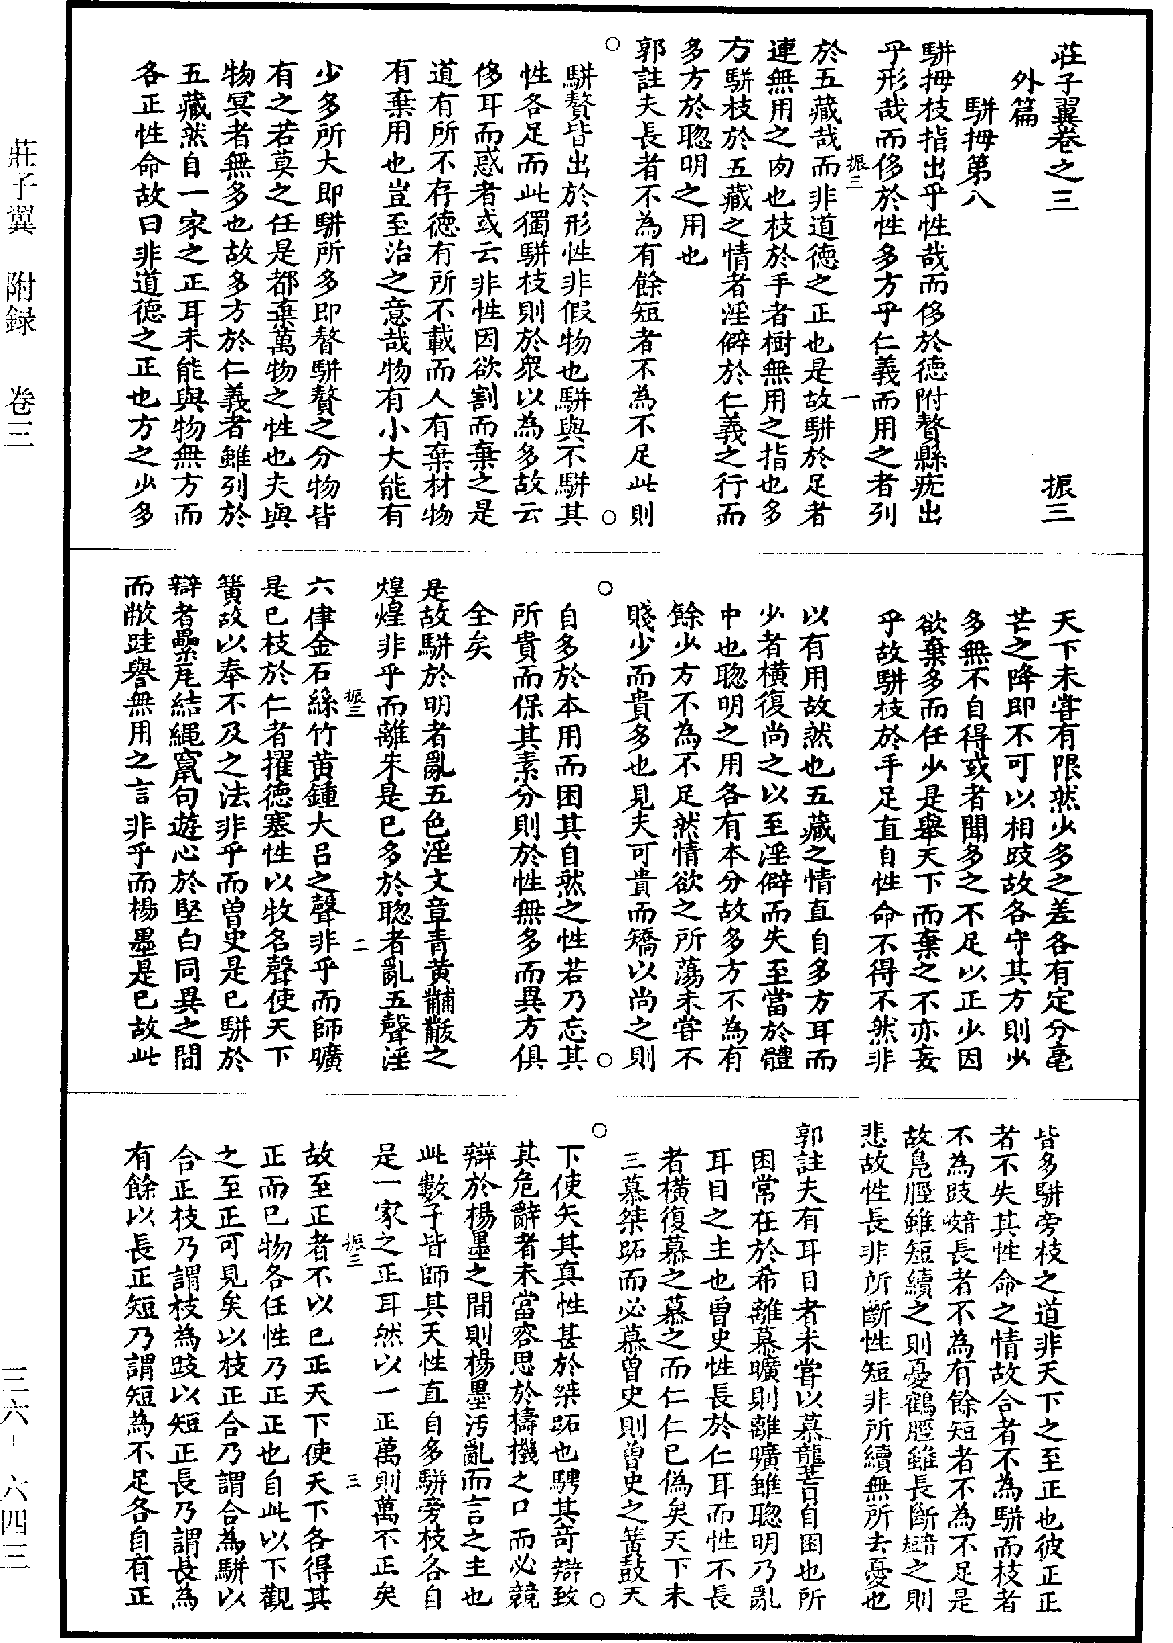 莊子翼卷之三　振三
外篇
駢拇第八
駢拇枝指出乎性哉而侈於徳附贅縣疣出
乎形哉而侈於性多方乎仁義而用之者列
於五藏哉而非道徳之正也是故駢於足者
連無用之肉也枝於手者樹無用之指也多
方駢枝於五藏之情者淫僻於仁義之行而
多方於聰明之用也
郭註夫長者不為有餘短者不為不足此則
駢贅皆出於形性非假物也駢與不駢其
性各足而此獨駢枝則於衆以為多故云
侈耳而惑者或云非性因欲割而棄之是
道有所不存徳有所不載而人有棄材物
有棄用也豈至治之意哉物有小大能有
少多所大即駢所多即贅駢贅之分物皆
有之若莫之任是都棄萬物之性也夫與
物冥者無多也故多方於仁義者雖列於
五藏然自一家之正耳未能與物無方而
各正性命故曰非道徳之正也方之少多
振三　一
天下未嘗有限然少多之差各有定分毫
芒之降即不可以相跂故各守其方則少
多無不自得或者聞多之不足以正少因
欲棄多而任少是舉天下而棄之不亦妄
乎故駢枝於手足直自性命不得不然非
以有用故然也五藏之情直自多方耳而
少者橫復尚之以至淫僻而失至當於體
中也聰明之用各有本分故多方不為有
餘少方不為不足然情欲之所蕩未嘗不
賤少而貴多也見夫可貴而矯以尚之則
自多於本用而困其自然之性若乃忘其
所貴而保其素分則於性無多而異方俱
全矣
是故駢於明者亂五色淫文章青黃黼黻之
煌煌非乎而離朱是已多於聰者亂五聲淫
六律金石絲竹黃鍾大呂之聲非乎而師曠
是已枝於仁者擢徳塞性以收名聲使天下
簧鼓以奉不及之法非乎而曾史是已駢於
辯者纍瓦結繩竄句遊心於堅白同異之間
而敝跬譽無用之言非乎而楊墨是已故此
振三　二
皆多駢旁枝之道非天下之至正也彼正正
者不失其性命之情故合者不為駢而枝者
不為跂長者不為有餘短者不為不足是
故鳧脛雖短續之則憂鶴脛雖長斷之則
悲故性長非所斷性短非所續無所去憂也
郭註夫有耳目者未嘗以慕聾盲自困也所
困常在於希離慕曠則離曠雖聰明乃亂
耳目之主也曾史性長於仁耳而性不長
者橫復慕之慕之而仁仁已偽矣天下未
三慕桀跖而必慕曾史則曾史之簧鼓天
下使失其真性甚於桀跖也騁其奇辯致
其危辭者未嘗容思於檮杌之口而必競
辯於楊墨之間則楊墨汚亂而言之主也
此數子皆師其天性直自多駢旁枝各自
是一家之正耳然以一正萬則萬不正矣
故至正者不以已正天下使天下各得其
正而已物各任性乃正正也自此以下觀
之至正可見矣以枝正合乃謂合為駢以
合正枝乃謂枝為跂以短正長乃謂長為
有餘以長正短乃謂短為不足各自有正
振三　三
莊子翼　附録　卷三　三六－六四三